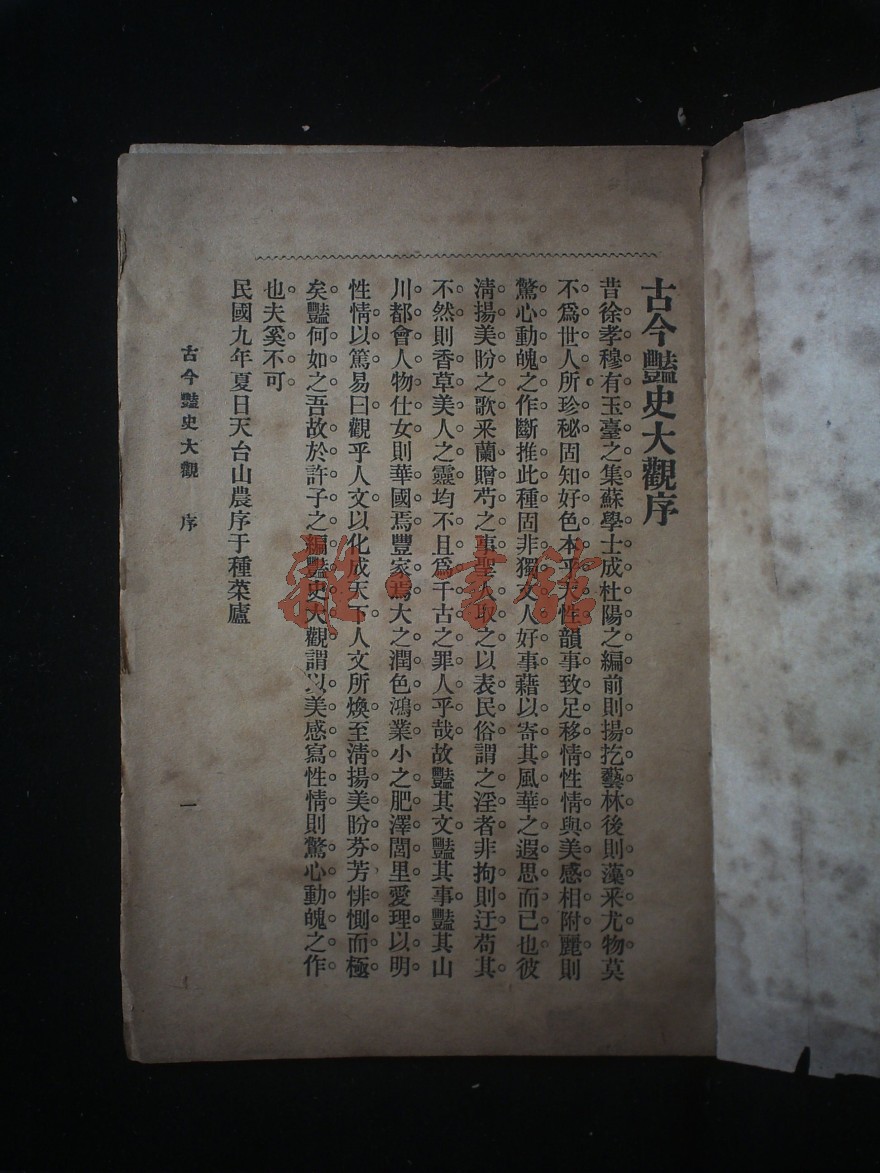 古今豔史大觀序
昔徐孝穆有玉臺之集蘇學士成杜陽之編前則揚扢藝林後則藻釆尤物莫
不爲世人所珍秘固知好色本乎天性韻事致足移情性情與美感相附麗則
驚心動魄之作斷推此種固非獨文人好事藉以寄其風華之遐思而已也彼
淸揚美盼之歌釆蘭贈芍之事聖人取之以表民俗謂之淫者非拘則迂苟其
不然則香草美人之靈均不且爲千古之罪人乎哉故豔其文豔其事豔其山
川都會人物仕女則華國焉豐家焉大之潤色鴻業小之肥澤閭里愛理以明
性情以篤易曰觀乎人文以化成天下人文所煥至淸揚美盼芬芳悱惻而極
矣豔何如之吾故於許子之編豔史大觀謂以美感寫性情則驚心動魄之作
也夫奚不可
民國九年夏日天台山農序于種菜廬
古今豔史大觀 序 一
雜·書館